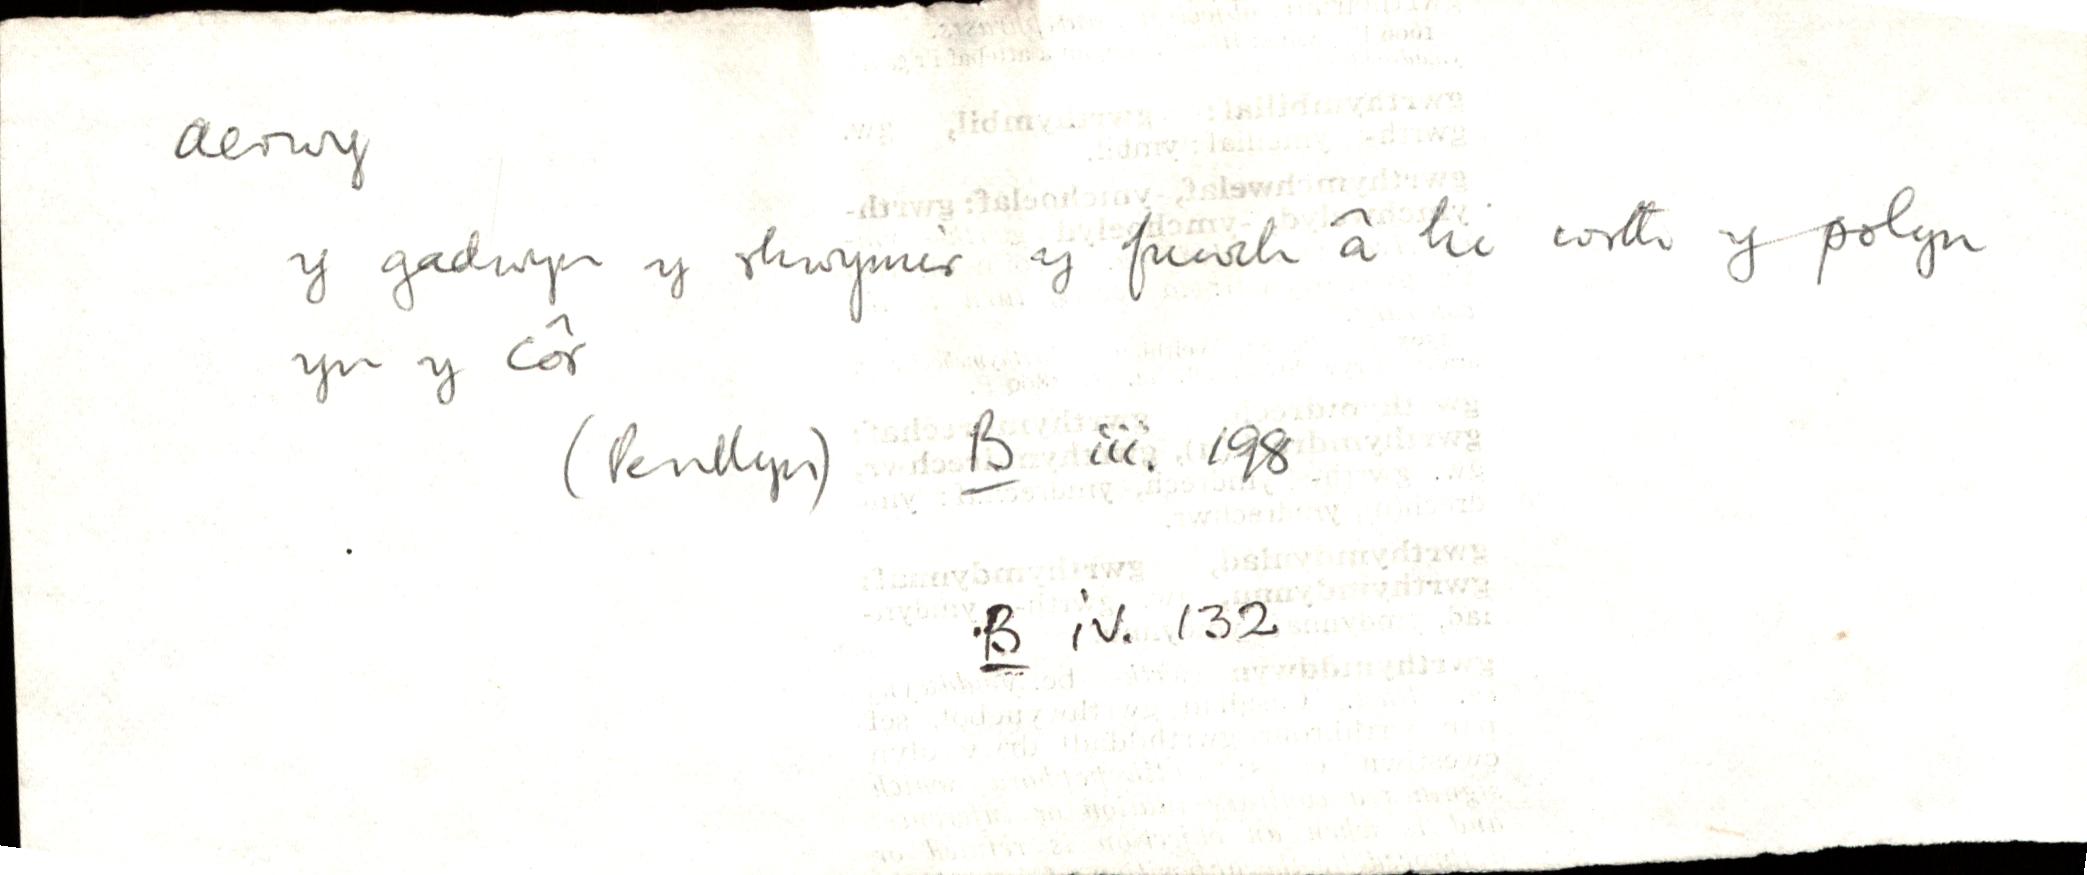 aerwy
y gadwyn y rhwymir y fuwch â hi wrth y polyn
yn y côr
(Penllyn) B iii. 198
B iv. 132